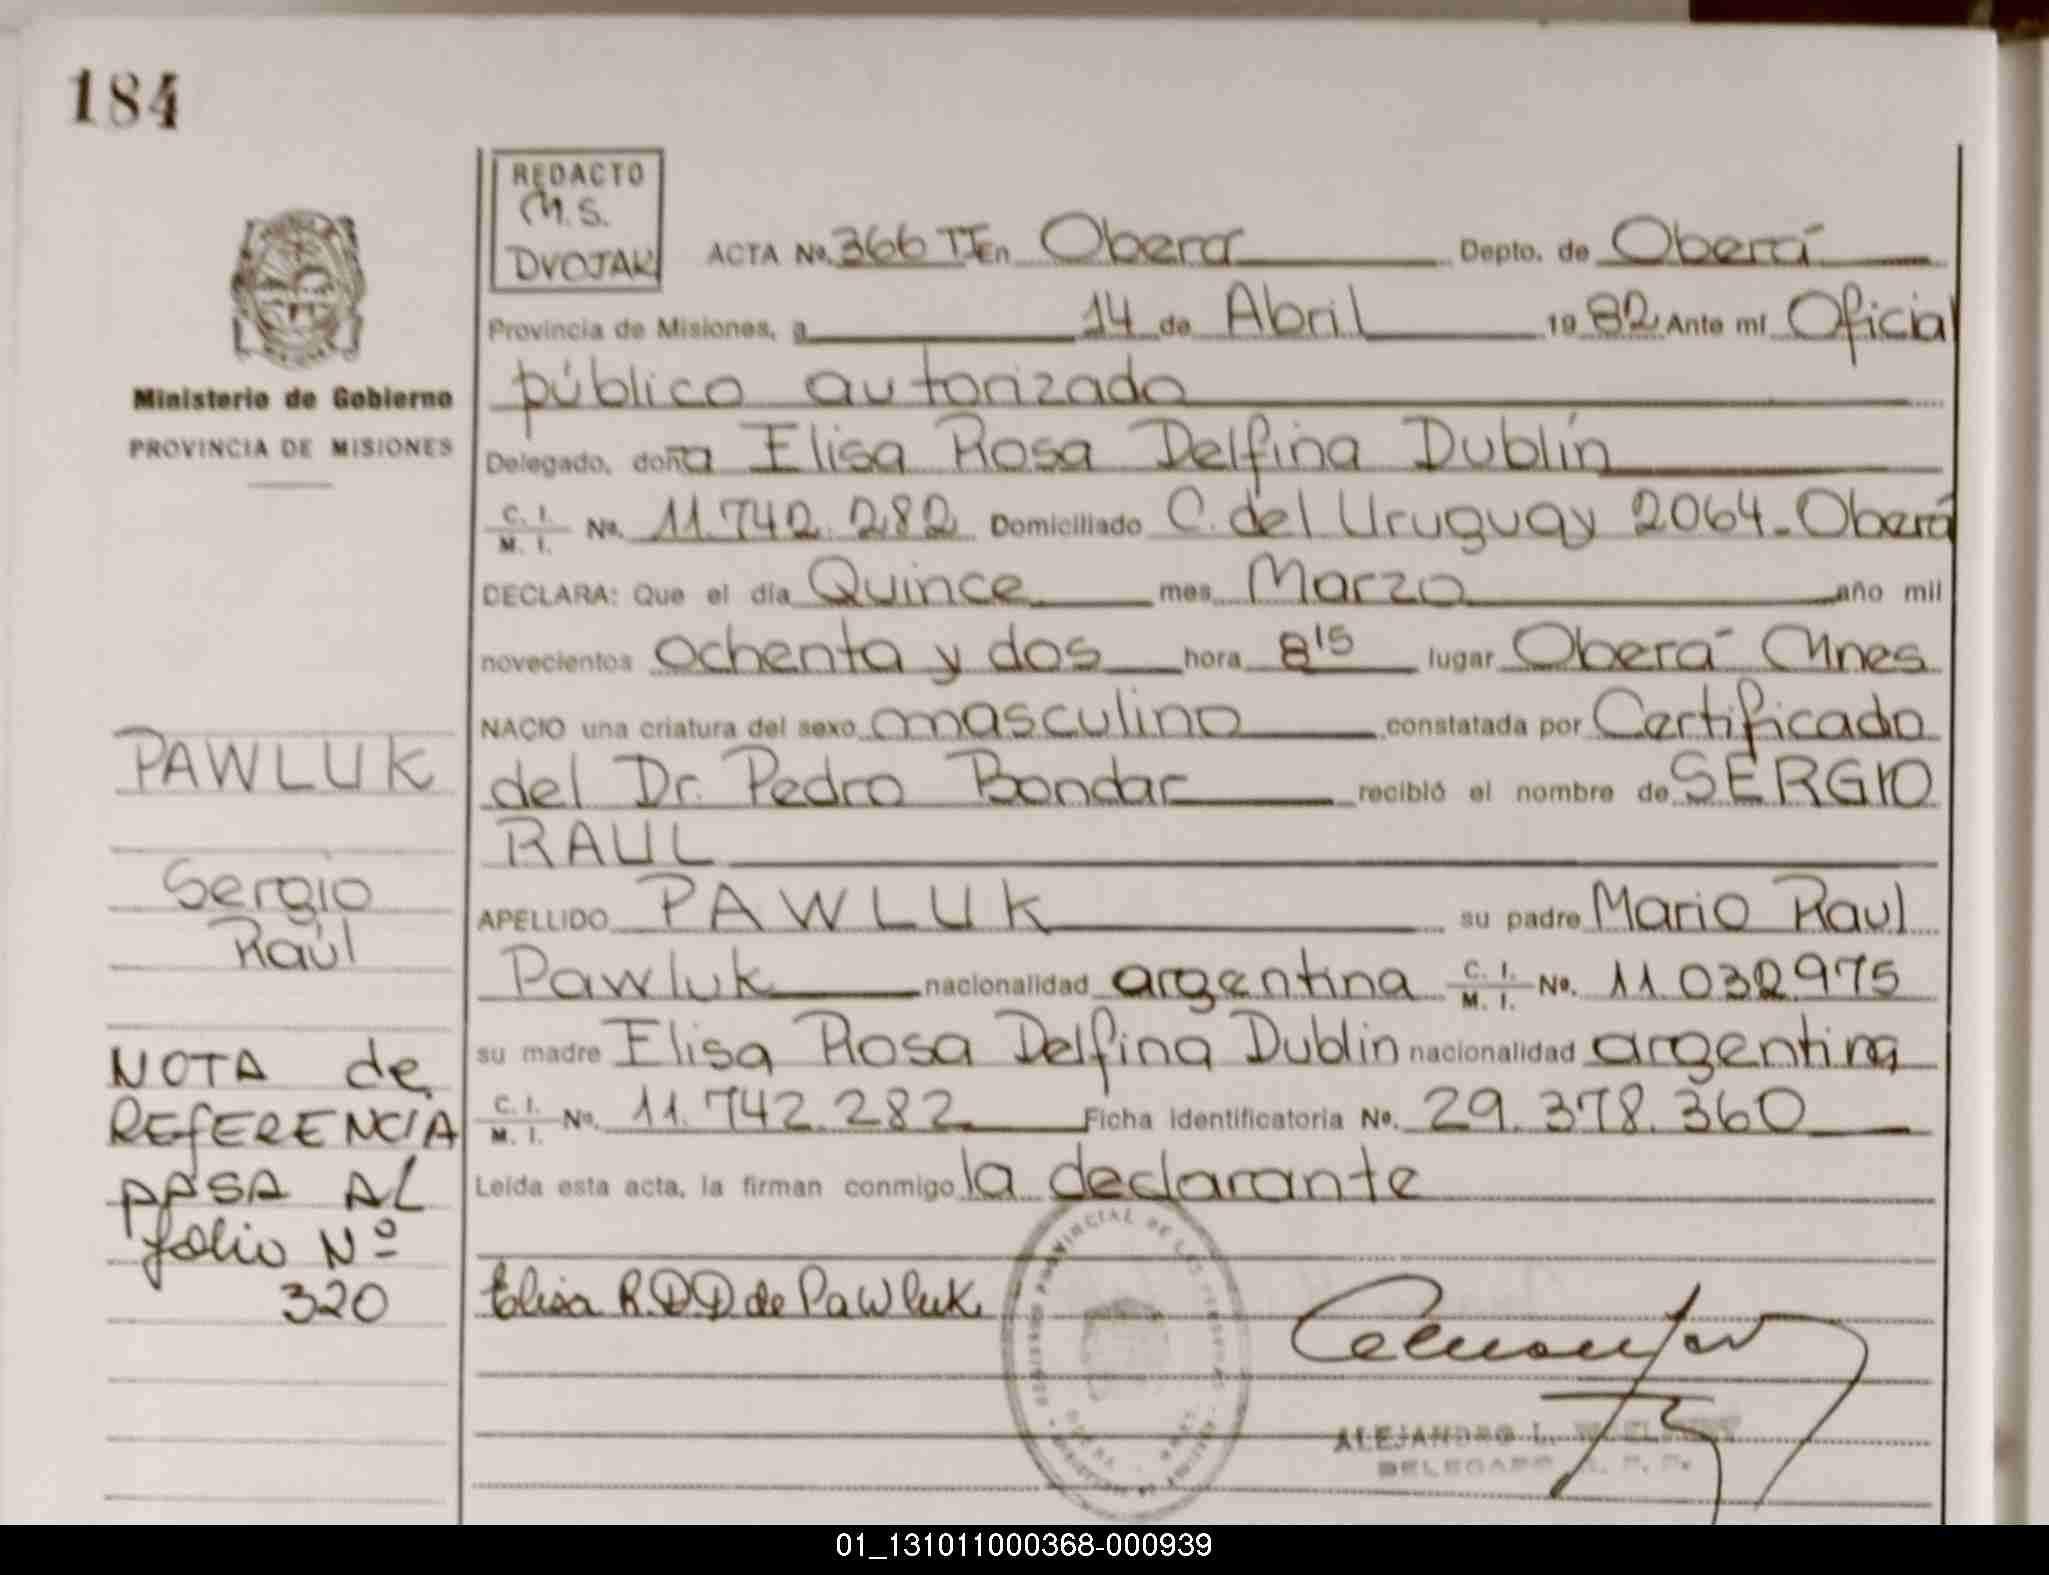 184
REDACTO
M.S.
DVOJAK
ACTA No. 366 TI En Obera Depto. de Oberá
Provincia de Misiones, a 14 de Abril 1982 Ante mí Oficial
público autorizado
Ministerio de Gobierno
PROVINCIA DE MISIONES
Delegado, doña Elisa Rosa Delfina Dublín
C. I.
M. I. No. 11.742.282 Domiciliado C. del Uruguay 2064-Oberá
DECLARA: Que el día Quince mes Marzo año mil
novecientos ochenta y dos hora 8 15 lugar Oberá Mnes
NACIO una criatura del sexo masculino constatada por Certificado
del Dr. Pedro Bondar recibió el nombre de SERGIO
RAUL
APELLIDO PAWLUK su padre Mario Raul
Pawluk nacionalidad argentina C. I. M. I. No. 11.032.975
su madre Elisa Rosa Delfina Dublin nacionalidad argentina
C. I.
M. I. No. 11.742.282 Ficha identificatoria No. 29.378.360
Leída esta acta, la firman conmigo la declarante
PAWLUK
Sergio
Raúl
NOTA de
REFERENCIA
PASA AL
folio Nº
320
Elisa R.D.D de Pawluk
REGISTRO PROVINCIAL DE LAS PERSONAS
ALEJANDRO L.
DELEGADO R. P. P.
01_131011000368-000939